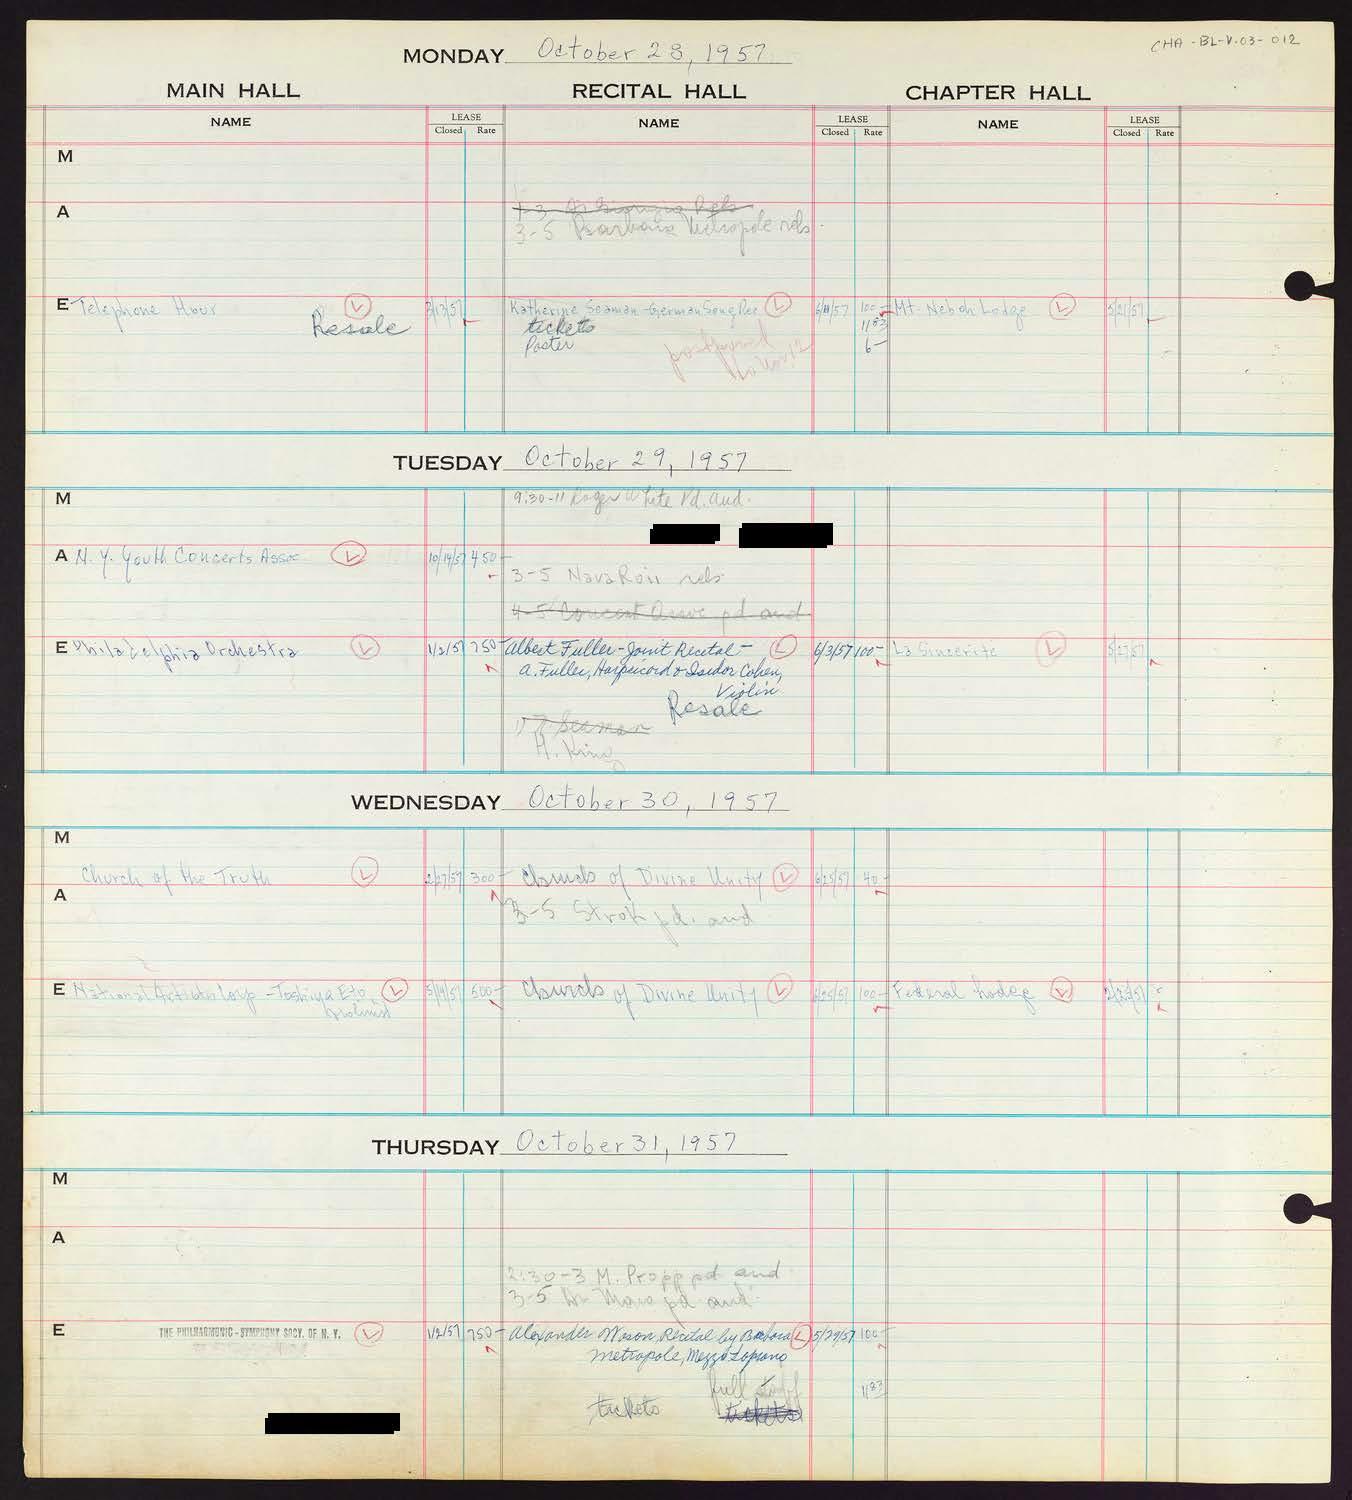 CHA-BL-V.03-012
MONDAY October 28, 1957
MAIN HALL RECITAL HALL CHAPTER HALL
NAME LEASE NAME LEASE NAME LEASE
Closed Rate Closed Rate Closed Rate
M
A
3-5 Barbara Metropole rehs
E Telephone Hour L 3/13/57 Katherine Seaman-German Song Rec L 100- Mt. Neboh Lodge L 5/21/57
Resale tickets 1183
Poster 6-
postponed
to Nov 12
TUESDAY October 29, 1957
M 9:30-11 Roger White Pd. aud.
A N.Y. Youth Concerts Assoc. L 10/14/57 450-
3-5 rehs
4-5 Concert Assoc pd aud
E Philadelphia Orchestra L 1/2/57 750- Albert Fuller-Joint Recital- L 6/3/57 100- La Sincerite L 5/27/57
A. Fuller, Harpsicord & Isidor Cohen,
Violin
Resale
Seaman
H. King
WEDNESDAY October 30, 1957
M
Church of the Truth L 2/27/57 300- Church of Divine Unity L 6/25/57 40-
A
3-5 Strok pd. aud
E National Artists Corp-Toshiya Eto L 5/14/57 500- Church of Divine Unity L 6/25/57 100- Federal Lodge L
Violinist
THURSDAY October 31, 1957
M
A
2:30-3 M. Propp pd aud
3-5 pd aud
E THE PHILHARMONIC-SYMPHONY SOCY. OF N.Y. L 1/2/57 750- Alexander Wason, Recital by Barbara L 5/29/57 100-
Metropole, Mezzo Soprano
full staff 1183
tickets tickets